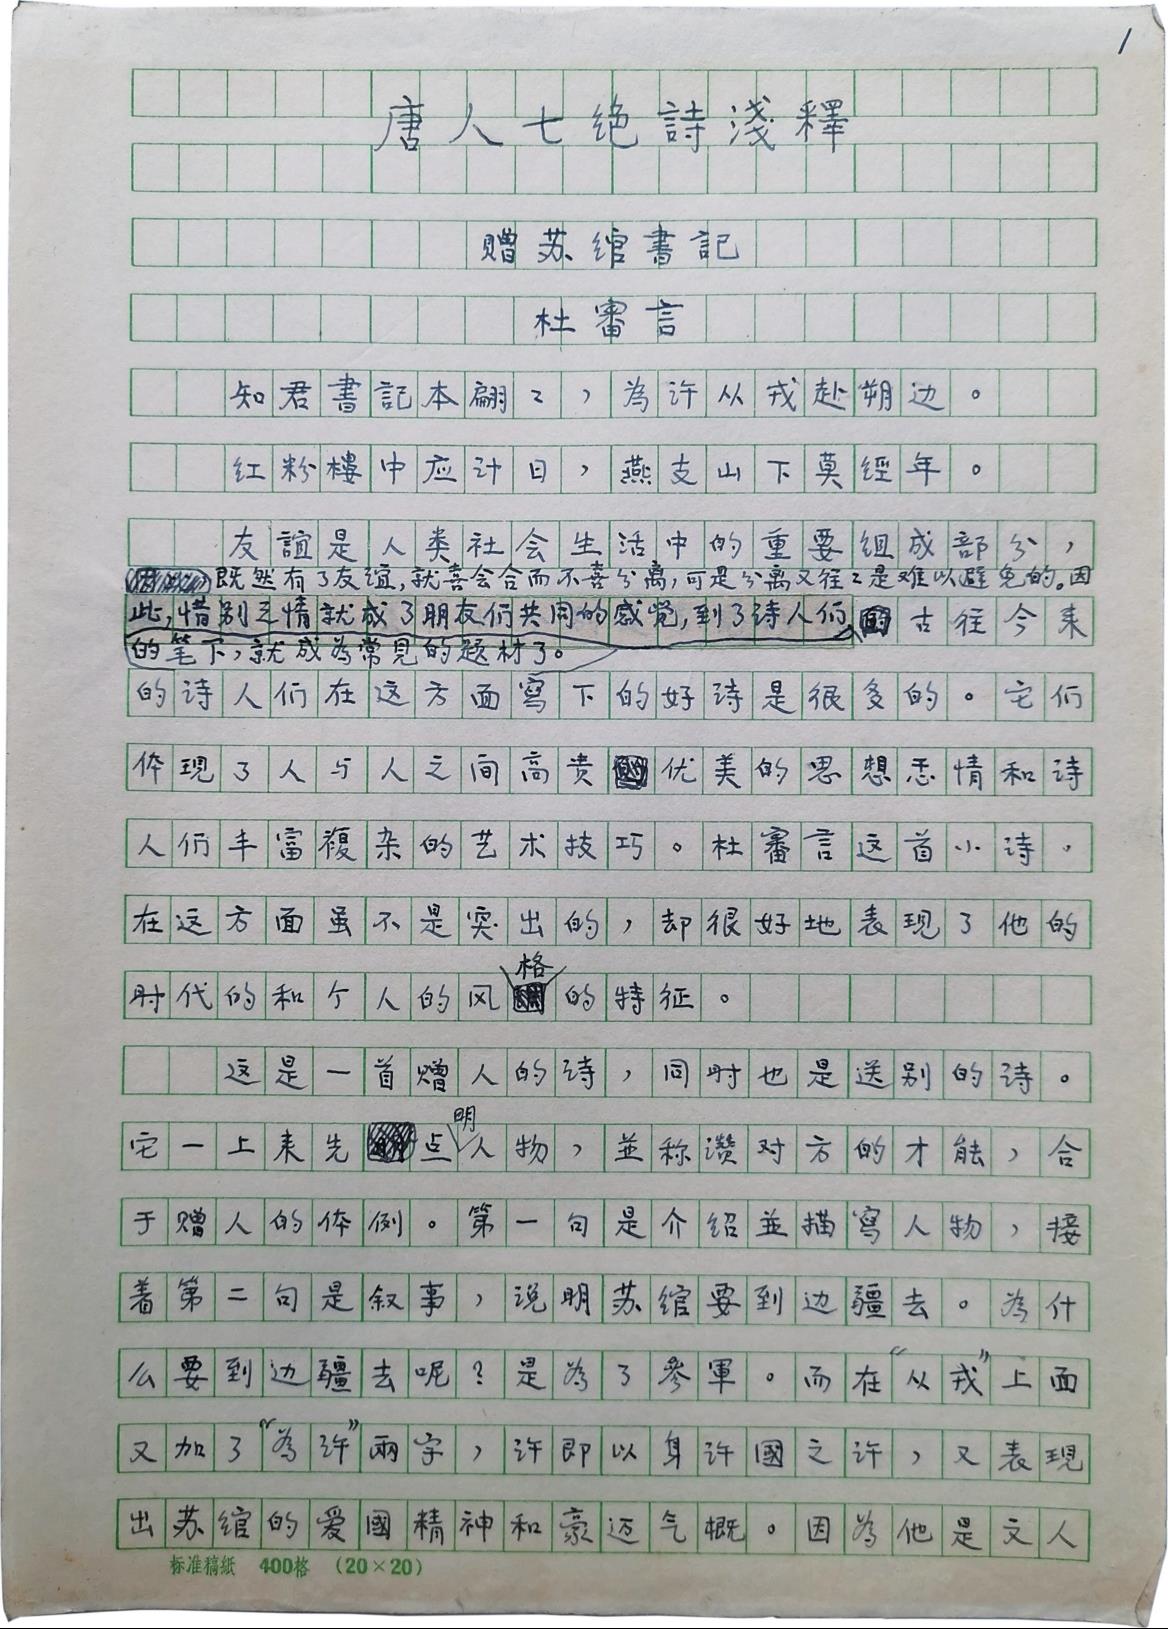 1
唐人七绝詩淺釋
赠苏綰書記
杜審言
知君書記本翩〻，為许从戎赴朔边。
红粉樓中应计日，燕支山下莫經年。
友誼是人类社会生活中的重要组成部分，
既然有了友谊，就喜会合而不喜分离，可是分离又往〻是难以避免的。因
此，惜别之情就成了朋友们共同的感觉，到了诗人们
古往今来
的笔下，就成為常见的题材了。
的诗人们在这方面寫下的好诗是很多的。它们
体現了人与人之间高贵优美的思想感情和诗
人们丰富複杂的艺术技巧。杜審言这首小诗，
在这方面虽不是突出的，却很好地表現了他的
时代的和个人的风格的特征。
这是一首赠人的诗，同时也是送别的诗。
它一上来先点明人物，並称讚对方的才能，合
于赠人的体例。第一句是介绍並描寫人物，接
着第二句是叙事，说明苏綰要到边疆去。為什
么要到边疆去呢？是為了參軍。而在“从戎”上面
又加了“為许”兩字，许即以身许國之许，又表現
出苏綰的爱國精神和豪迈气概。因為他是文人
标准稿紙 400格 (20×20)